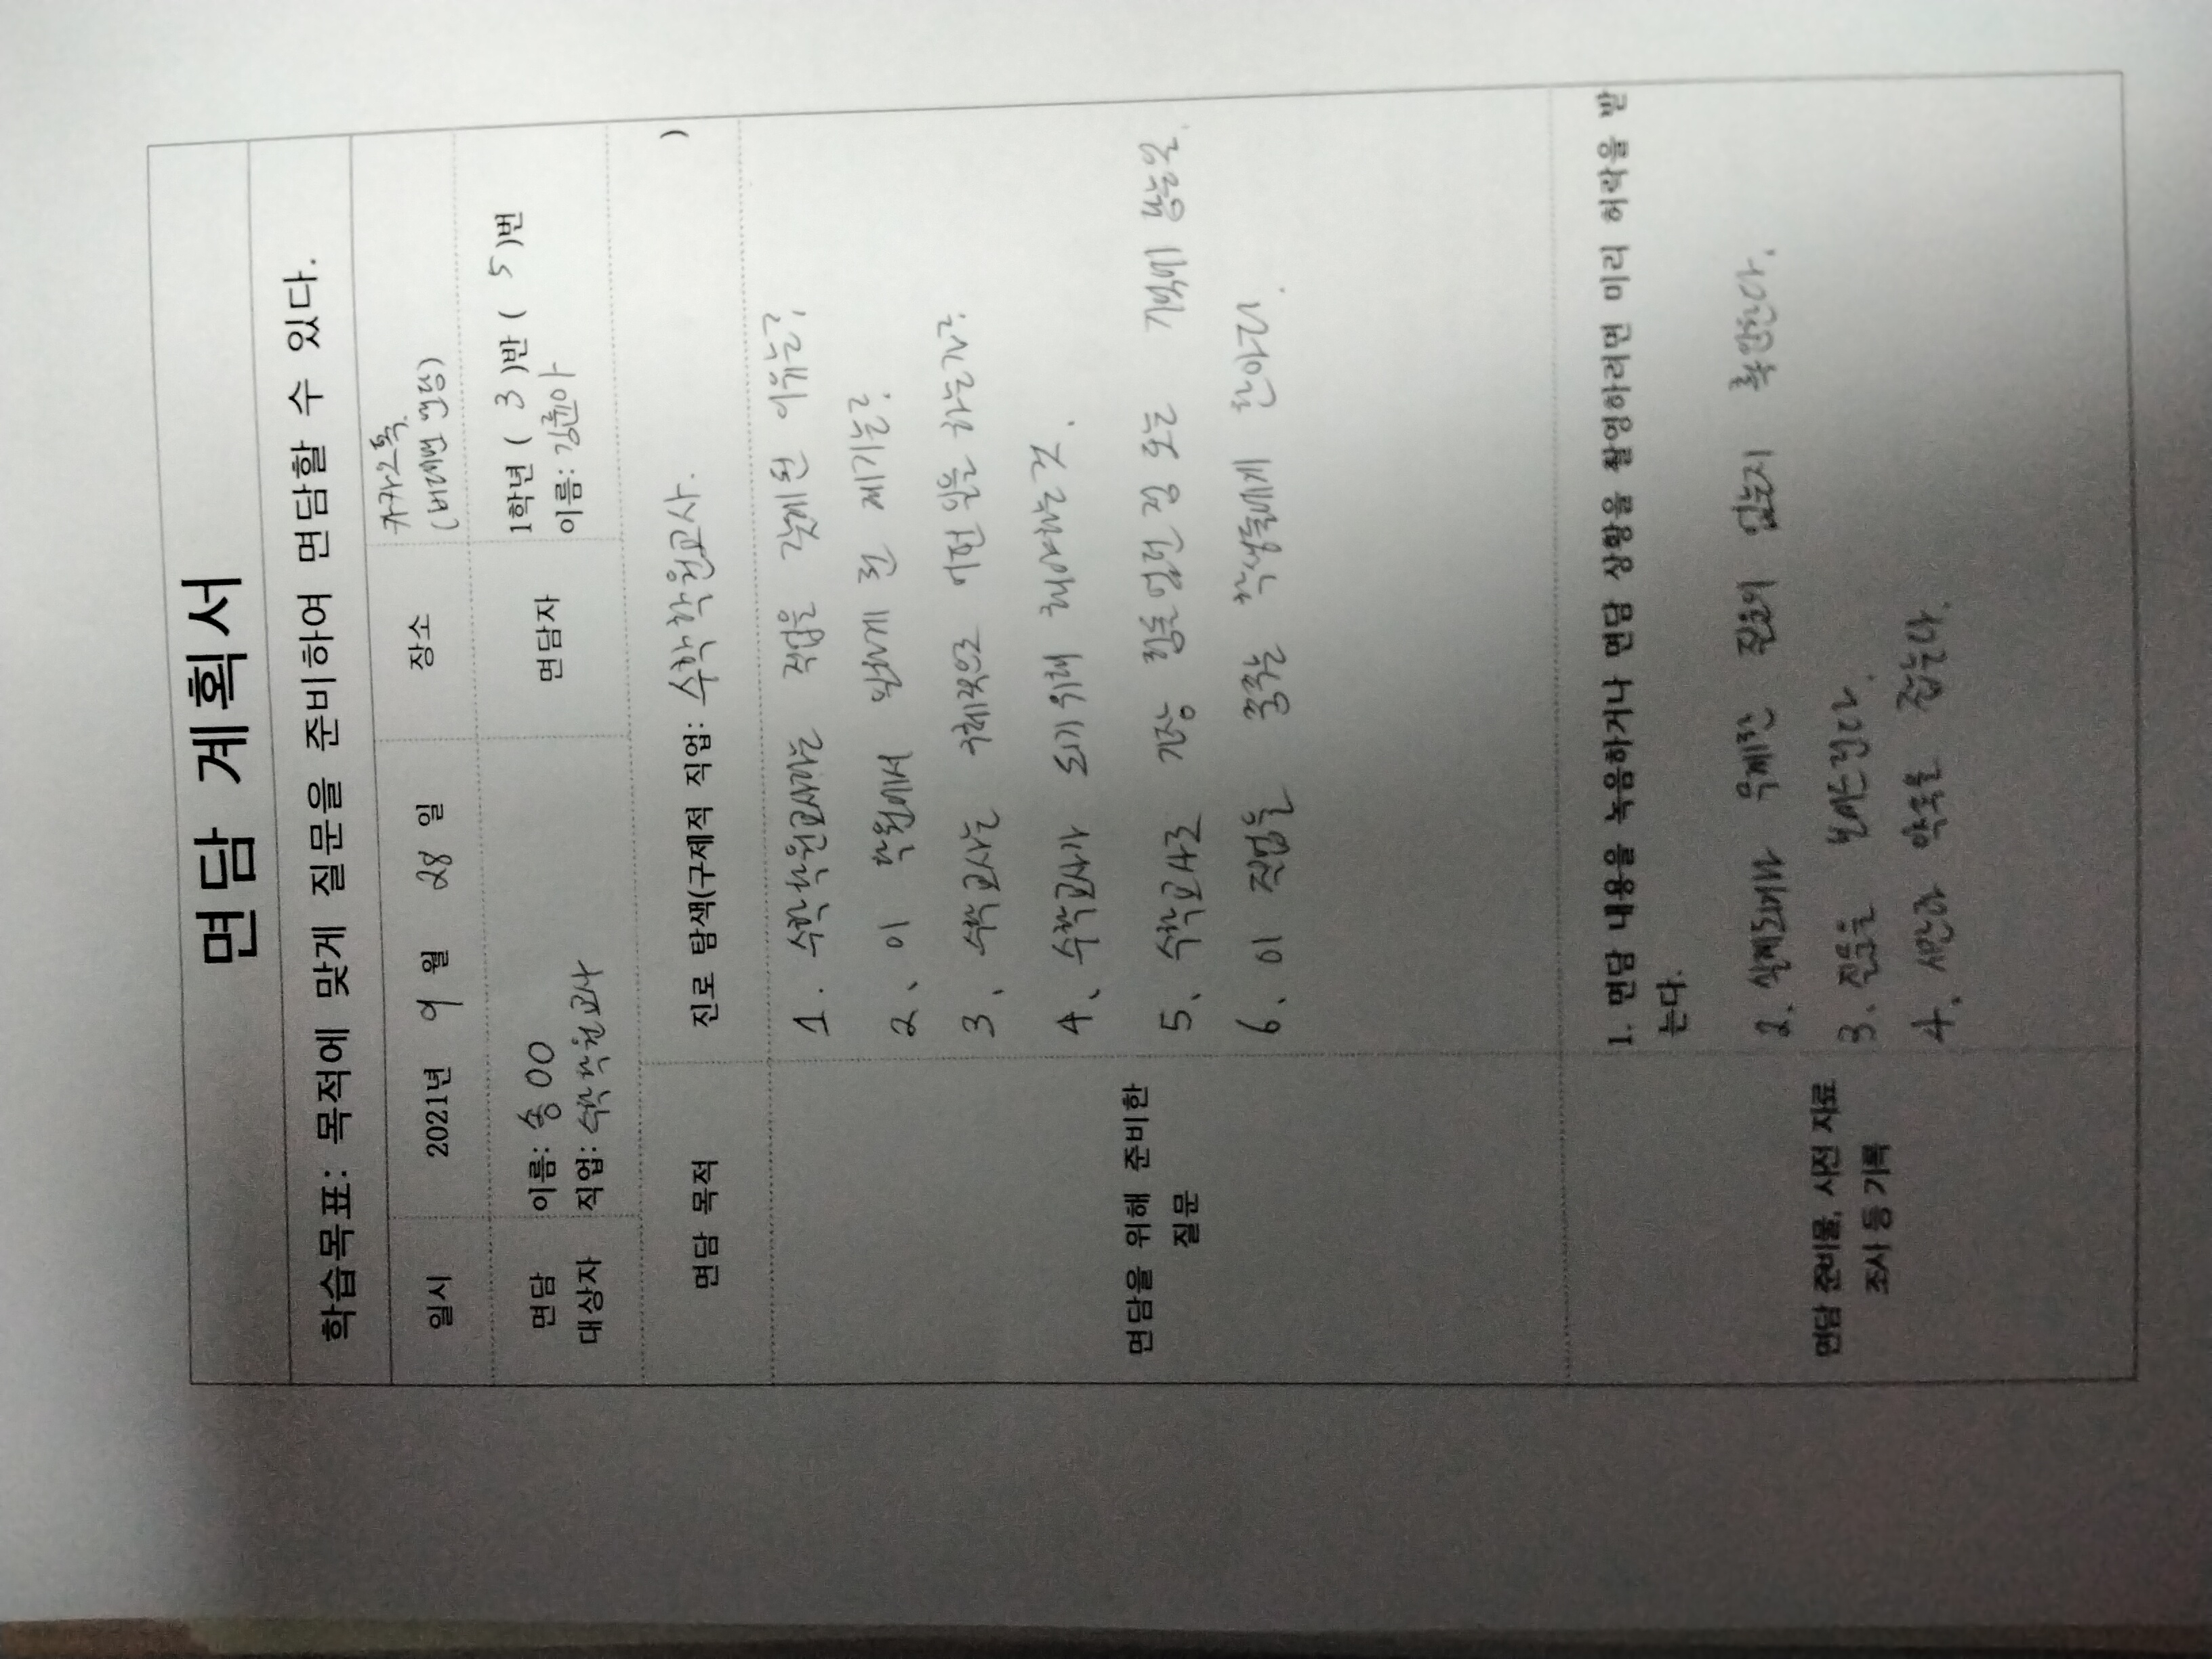 면담 계획서
학습목표: 목적에 맞게 질문을 준비하여 면담할 수 있다.
일시
2021년 9 월 28 일
장소
카카오톡
(비대면 면담)
면담
대상자
이름: 송00
직업: 수학학원교사
면담자
1학년 ( 3 )반 ( 5 )번
이름: 김윤아
면담 목적
진로 탐색(구체적 직업: 수학학원교사. )
면담을 위해 준비한
질문
1. 수학학원교사라는 직업을 갖게 된 이유는?
2. 이 학원에서 일하게 된 계기는?
3. 수학교사는 구체적으로 어떤 일을 하는가?
4. 수학교사가 되기 위해 해야하는 것.
5. 수학교사로 가장 힘들었던 점 또는 기억에 남는일.
6. 이 직업을 꿈꾸는 학생들에게 한마디.
면담 준비물, 사전 자료
조사 등 기록
1. 면담 내용을 녹음하거나 면담 상황을 촬영하려면 미리 허락을 받
는다.
2. 실제로 무례한 질문이 없는지 확인한다.
3. 질문을
4. 약속을 잡는다.